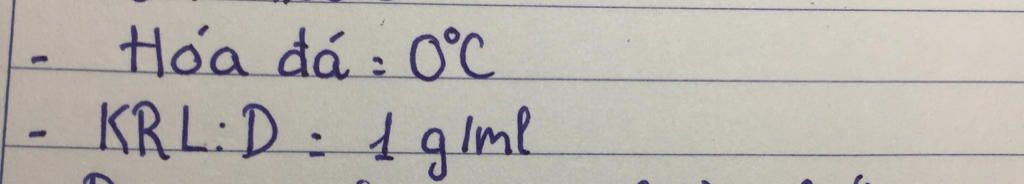 - Hóa đá : 0°C
- KRL: D = 1 g/ml